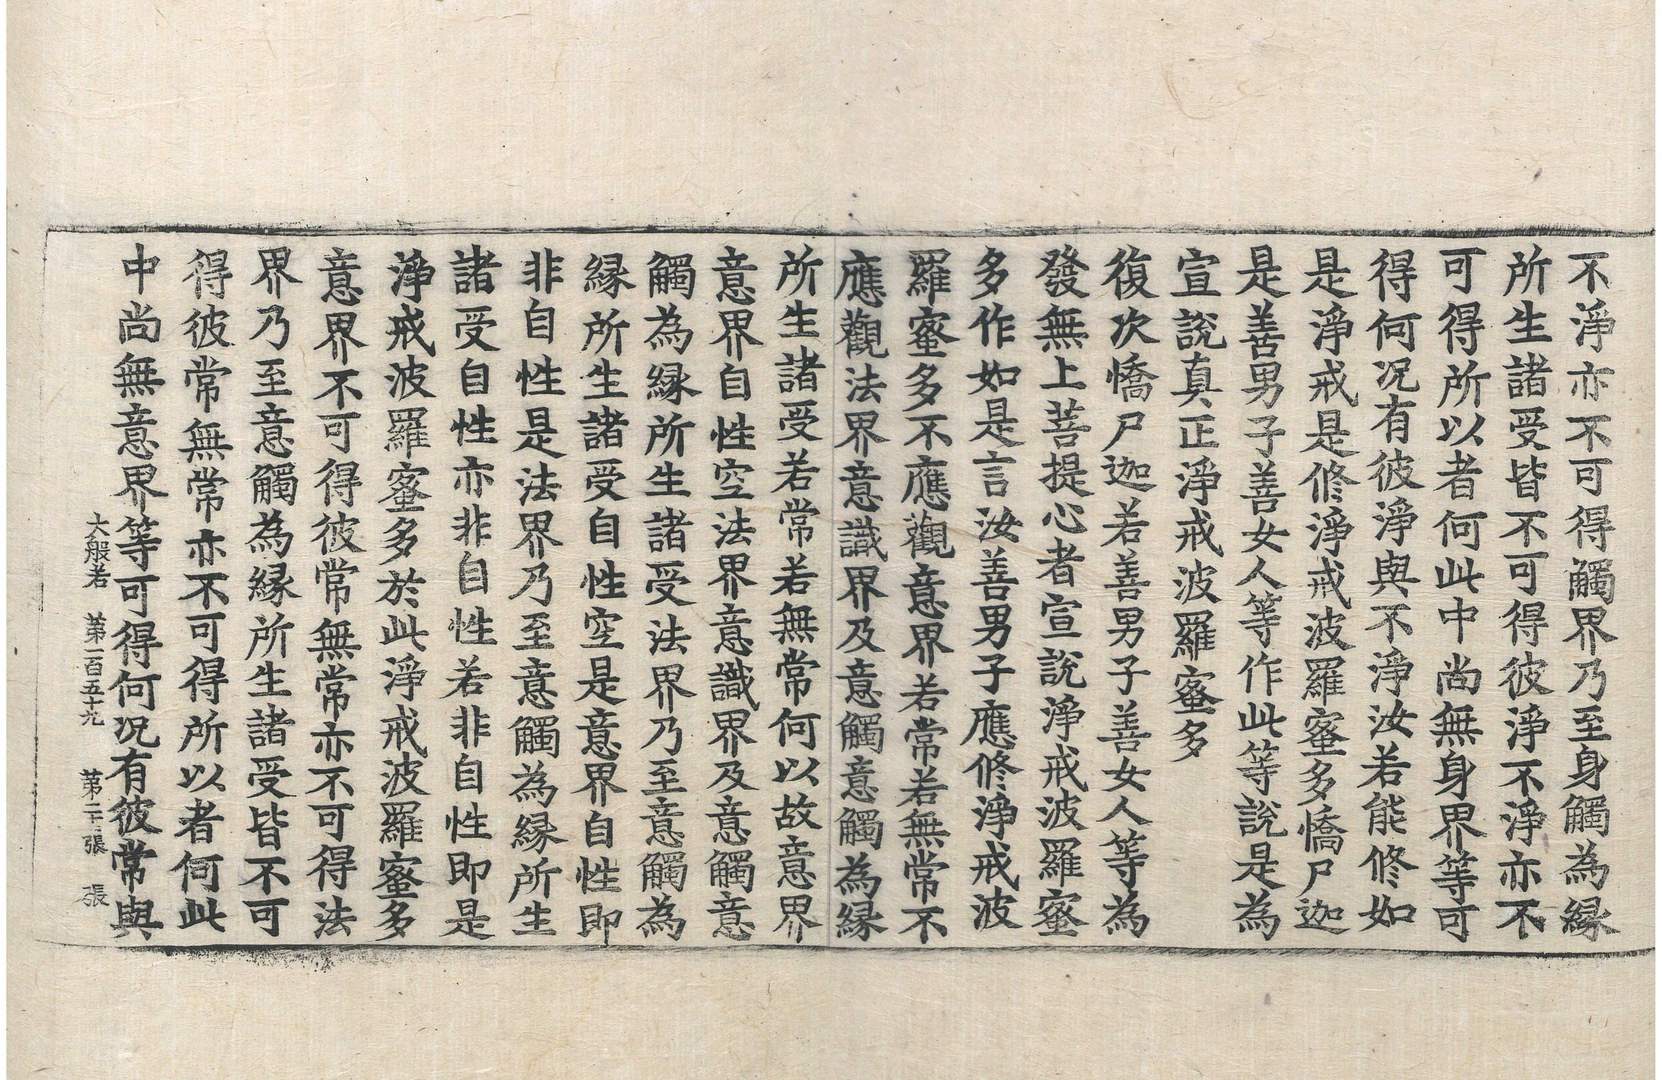 不淨亦不可得觸界乃至身觸為縁
所生諸受皆不可得彼淨不淨亦不
可得所以者何此中尚無身界等可
得何况有彼淨與不淨汝若能修如
是淨戒是修淨戒波羅蜜多憍尸迦
是善男子善女人等作此等說是為
宣說真正淨戒波羅蜜多
復次憍尸迦若善男子善女人等為
發無上菩提心者宣說淨戒波羅蜜
多作如是言汝善男子應修淨戒波
羅蜜多不應觀意界若常若無常不
應觀法界意識界及意觸意觸為縁
所生諸受若常若無常何以故意界
意界自性空法界意識界及意觸意
觸為縁所生諸受法界乃至意觸為
縁所生諸受自性空是意界自性即
非自性是法界乃至意觸為縁所生
諸受自性亦非自性若非自性即是
淨戒波羅蜜多於此淨戒波羅蜜多
意界不可得彼常無常亦不可得法
界乃至意觸為縁所生諸受皆不可
得彼常無常亦不可得所以者何此
中尚無意界等可得何况有彼常與
大般若 第一百五十九 第二十張 張